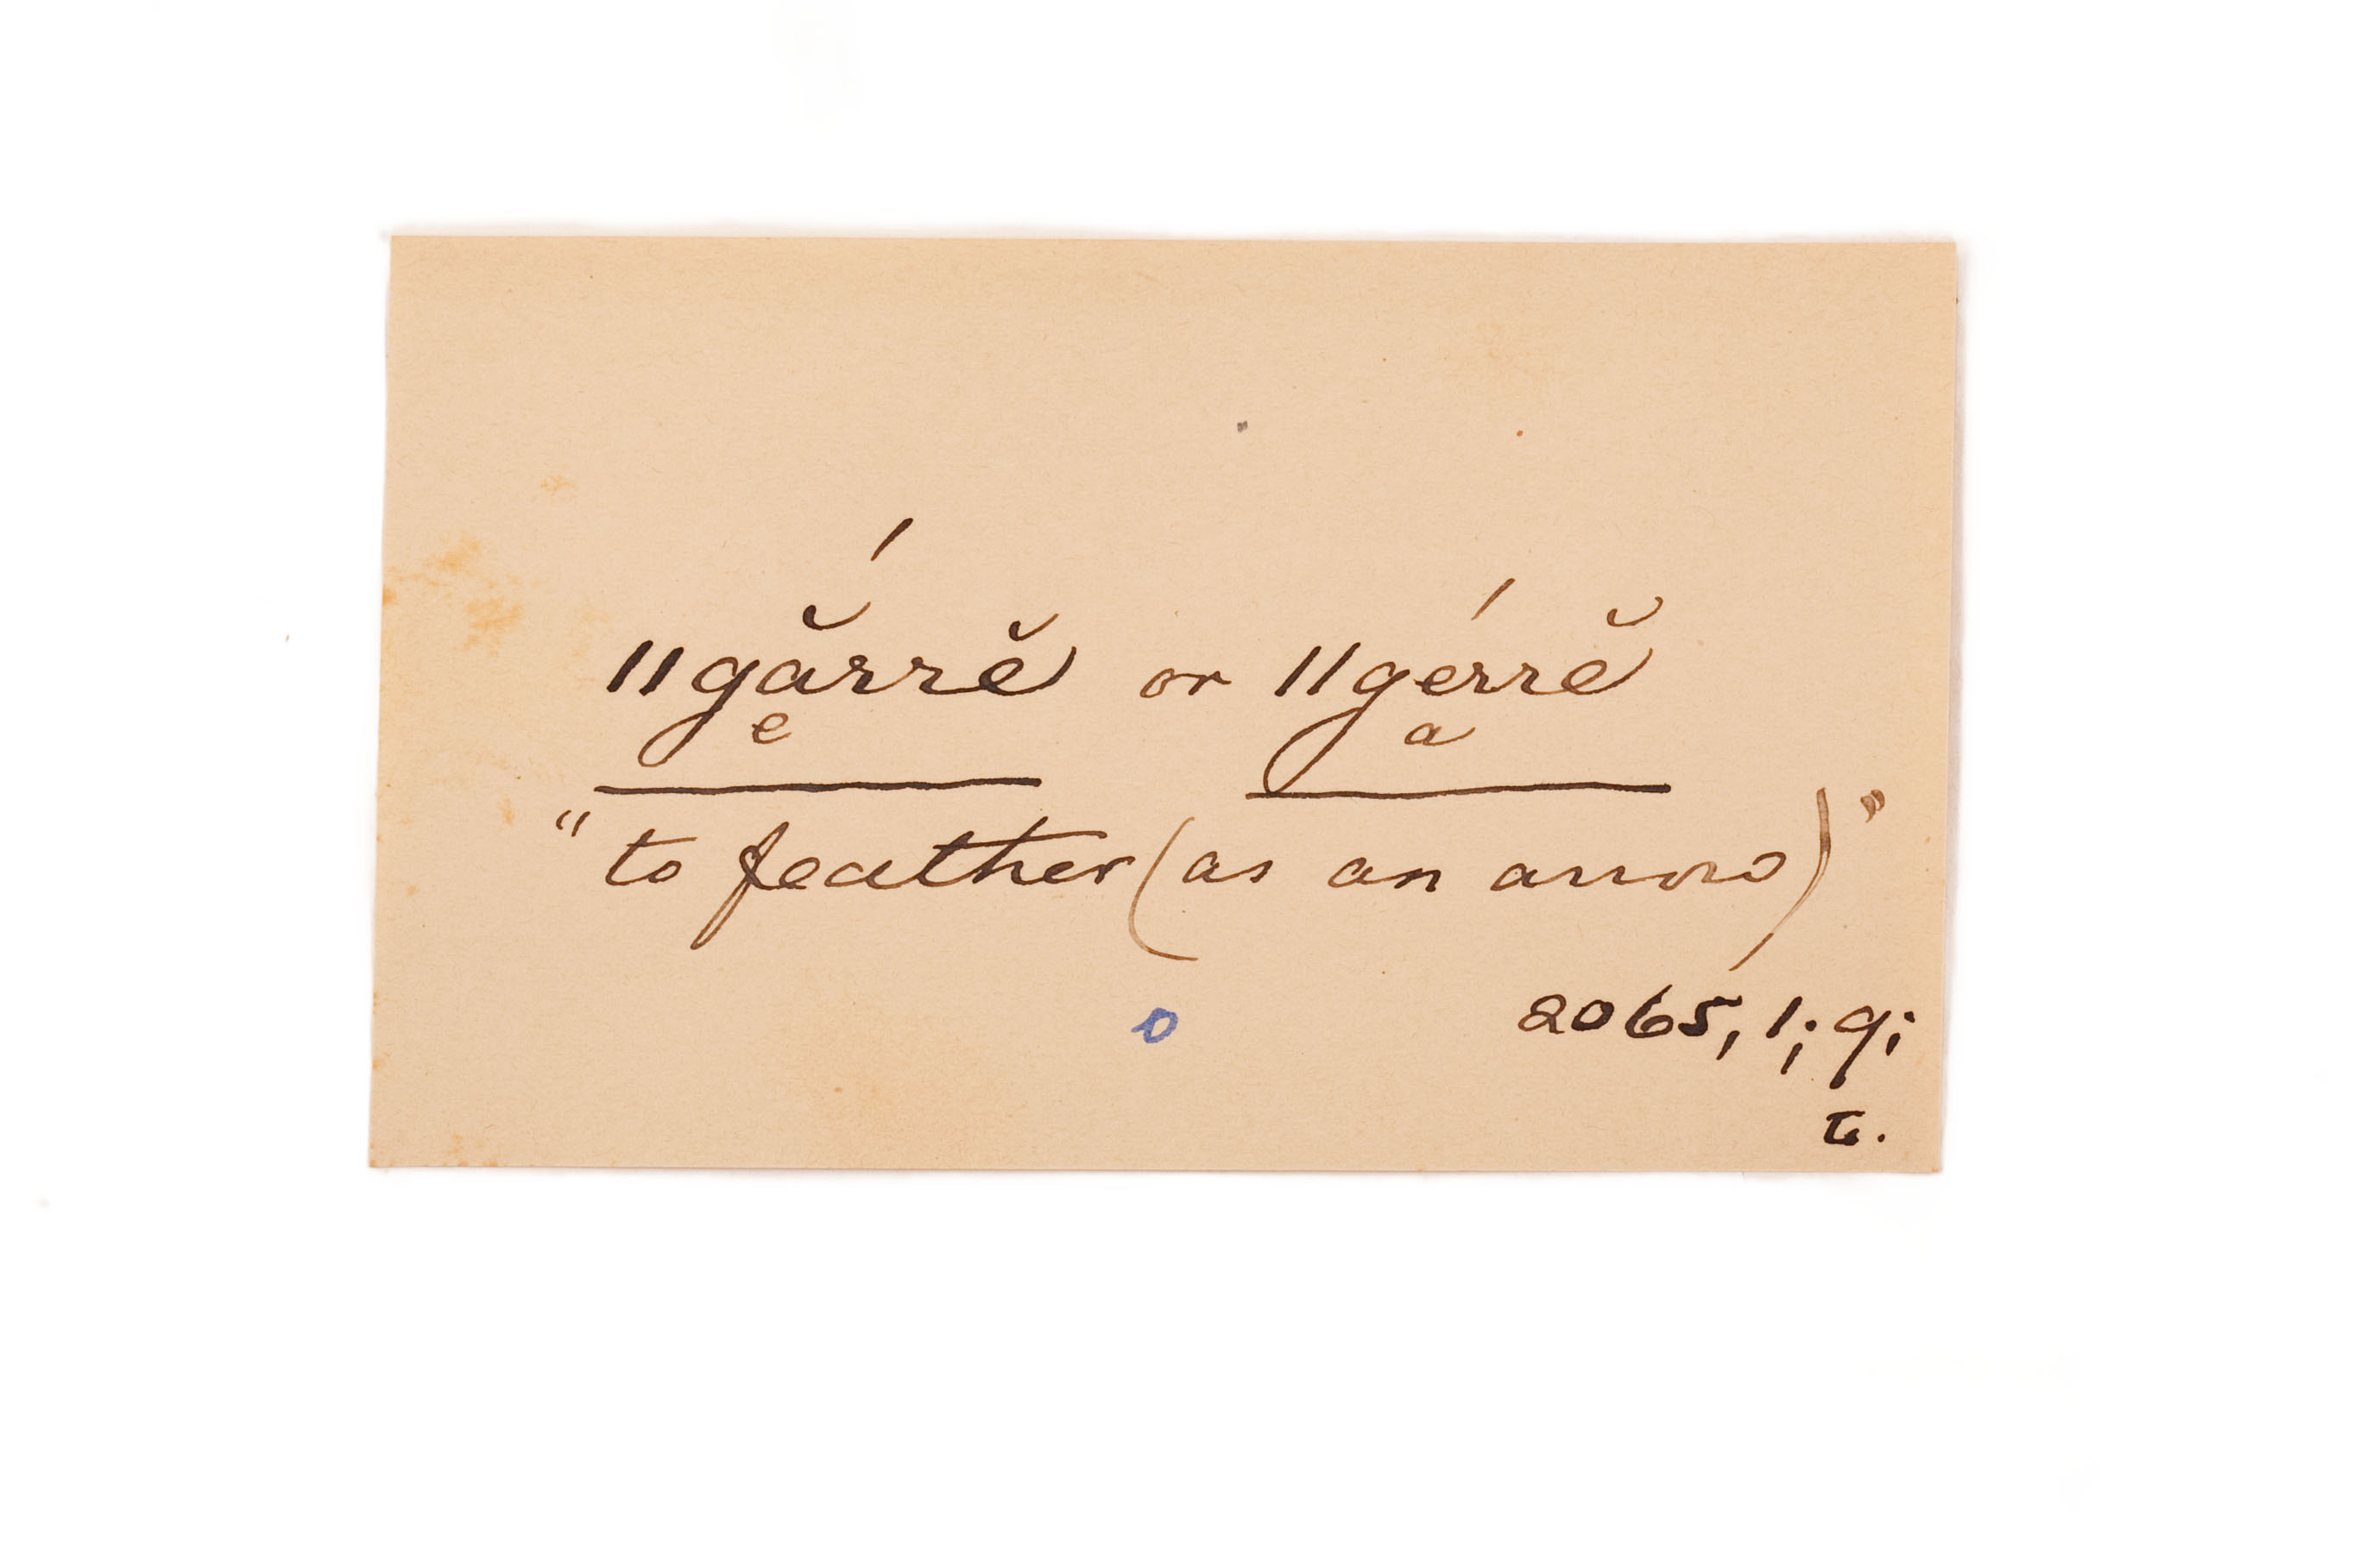 ǁgắrrĕ or ǁgérrĕ
e a
“to feather (as an arrow)”
o 2065, 1; 9;
τ.